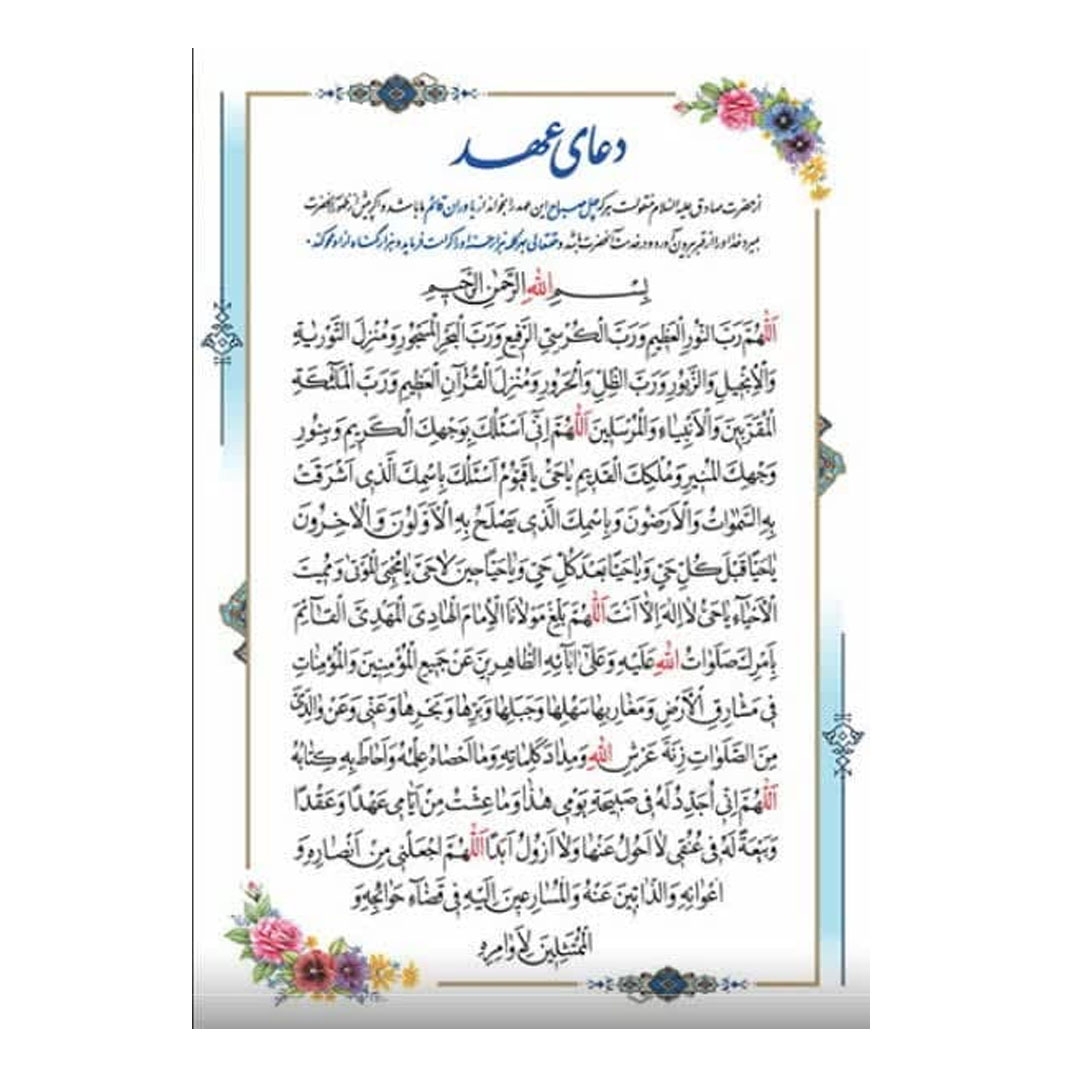 دعای عهد
از حضرت صادق علیه السلام منقولست هر که چهل صباح این عهد را بخواند از یاوران قائم ما باشد و اگر پیش از ظهور آنحضرت
بمیرد خدا او را از قبر بیرون آورد و در خدمت آنحضرت باشد و حقتعالی بهر کلمه هزار حسنه او را کرامت فرماید و هزار گناه از او محو کند.
بِسْمِ اللهِ الرَّحْمٰنِ الرَّحیمِ
اَللّٰهُمَّ رَبَّ النُّورِ الْعَظیمِ وَرَبَّ الْکُرْسِیِّ الرَّفیعِ وَرَبَّ الْبَحْرِ الْمَسْجُورِ وَمُنْزِلَ التَّوْریٰةِ
وَالْاِنْجیلِ وَالزَّبُورِ وَرَبَّ الظِّلِّ وَالْحَرُورِ وَمُنْزِلَ الْقُرْآنِ الْعَظیمِ وَرَبَّ الْمَلٰٓئِکَةِ
الْمُقَرَّبینَ وَالْاَنْبِیٰاءِ وَالْمُرْسَلینَ اَللّٰهُمَّ اِنّی اَسْئَلُکَ بِوَجْهِکَ الْکَریمِ وَبِنُورِ
وَجْهِکَ الْمُنیرِ وَمُلْکِکَ الْقَدیمِ یٰا حَیُّ یٰا قَیُّومُ اَسْئَلُکَ بِاسْمِکَ الَّذی اَشْرَقَتْ
بِهِ السَّمٰوٰاتُ وَالْاَرَضُونَ وَبِاسْمِکَ الَّذی یَصْلَحُ بِهِ الْاَوَّلُونَ وَالْاٰخِرُونَ
یٰا حَیًّا قَبْلَ کُلِّ حَیٍّ وَیٰا حَیًّا بَعْدَ کُلِّ حَیٍّ وَیٰا حَیًّا حینَ لاٰ حَیَّ یٰا مُحْیِیَ الْمَوْتیٰ وَمُمیتَ
الْاَحْیٰاءِ یٰا حَیُّ لاٰ اِلٰهَ اِلاّٰ اَنْتَ اَللّٰهُمَّ بَلِّغْ مَوْلاٰنَا الْاِمٰامَ الْهٰادِیَ الْمَهْدِیَّ الْقٰآئِمَ
بِاَمْرِکَ صَلَوٰاتُ اللهِ عَلَیْهِ وَعَلیٰ اٰبٰآئِهِ الطّٰاهِرینَ عَنْ جَمیعِ الْمُؤْمِنینَ وَالْمُؤْمِنٰاتِ
فی مَشٰارِقِ الْاَرْضِ وَمَغٰارِبِهٰا سَهْلِهٰا وَجَبَلِهٰا وَبَرِّهٰا وَبَحْرِهٰا وَعَنّی وَعَنْ وٰالِدَیَّ
مِنَ الصَّلَوٰاتِ زِنَةَ عَرْشِ اللهِ وَمِدٰادَ کَلِمٰاتِهِ وَمٰا اَحْصٰاهُ عِلْمُهُ وَاَحٰاطَ بِهِ کِتٰابُهُ
اَللّٰهُمَّ اِنّی اُجَدِّدُ لَهُ فی صَبیحَةِ یَوْمی هٰذٰا وَمٰا عِشْتُ مِنْ اَیّٰامی عَهْدًا وَعَقْدًا
وَبَیْعَةً لَهُ فی عُنُقی لاٰ اَحُولُ عَنْهٰا وَلاٰ اَزُولُ اَبَدًا اَللّٰهُمَّ اجْعَلْنی مِنْ اَنْصٰارِهِ وَ
اَعْوٰانِهِ وَالذّٰابّینَ عَنْهُ وَالْمُسٰارِعینَ اِلَیْهِ فی قَضٰاءِ حَوٰائِجِهِ وَ
الْمُمْتَثِلینَ لِاَوٰامِرِهِ